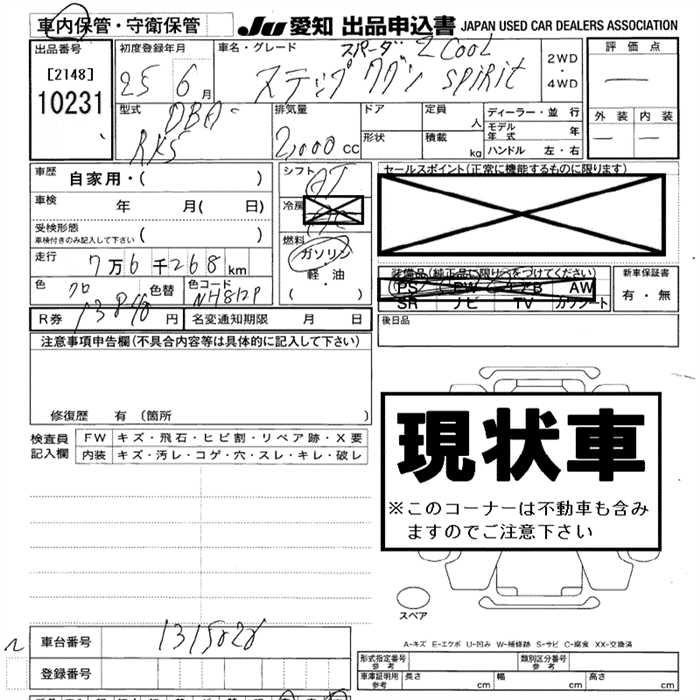 車内保管・守衛保管
JU 愛知 出品申込書 JAPAN USED CAR DEALERS ASSOCIATION
出品番号
[2148]
10231
初度登録年月
25 6月
車名・グレード
スパーダ Z COOL
ステップワゴン SPiRit
2WD
・
4WD
評価点
外装 内装
型式
DBA-
RK5
排気量
2,000 cc
ドア
形状
定員
人
積載
kg
ディーラー・並行
モデル年式 年
ハンドル 左・右
車歴
自家用・( )
車検
年 月( 日)
受検形態
車検付きのみ記入して下さい ( )
走行
7万6千268km
色
クロ
色替
色コード
NH812P
R券
13840円
名変通知期限 月 日
シフト
AT
冷房
燃料
ガソリン
軽・油
( )
セールスポイント(正常に機能するものに限ります)
装備品(純正品に限り○をつけてください)
PS PW エアB AW
SR ナビ TV カワシート
新車保証書
有・無
後日品
注意事項申告欄(不具合内容等は具体的に記入して下さい)
修復歴 有 (箇所 )
検査員記入欄
FW キズ・飛石・ヒビ割・リペア跡・X要
内装 キズ・汚レ・コゲ・穴・スレ・キレ・破レ
現状車
※このコーナーは不動車も含み
ますのでご注意下さい
スペア
A-キズ E-エクボ U-凹み W-補修跡 S-サビ C-腐食 XX-交換済
車台番号
登録番号
形式指定番号 参考
類別区分番号 参考
車庫証明用 参考
長さ cm
幅 cm
高さ cm